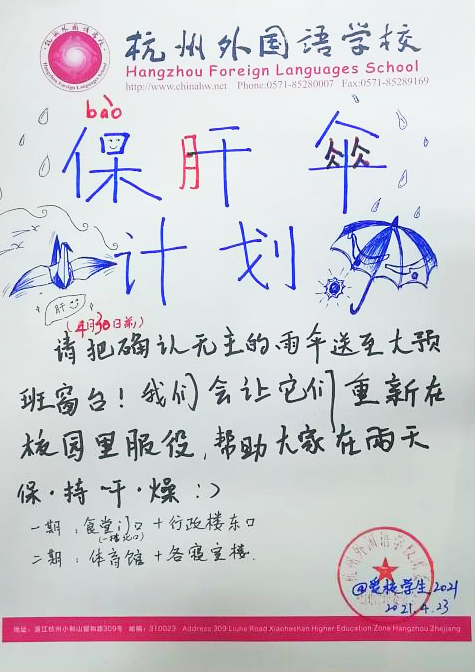 杭州外国语学校
Hangzhou Foreign Languages School
http://www.chinahw.net Phone:0571-85280007 Fax:0571-85289169
bǎo
保肝伞
计划
肝
(4月30日前)
请把确认无主的雨伞送至大预
班窗台!我们会让它们重新在
校园里服役,帮助大家在雨天
保·持·干·燥:)
一期:食堂门口+行政楼东口
(一楼北口)
二期:体育馆+各寝室楼.
@爱校学生2021
2021.4.23
地址:浙江杭州小和山留和路309号 邮编:310023 Address:309 Liuhe Road Xiaoheshan Higher Education Zone Hangzhou Zhejiang